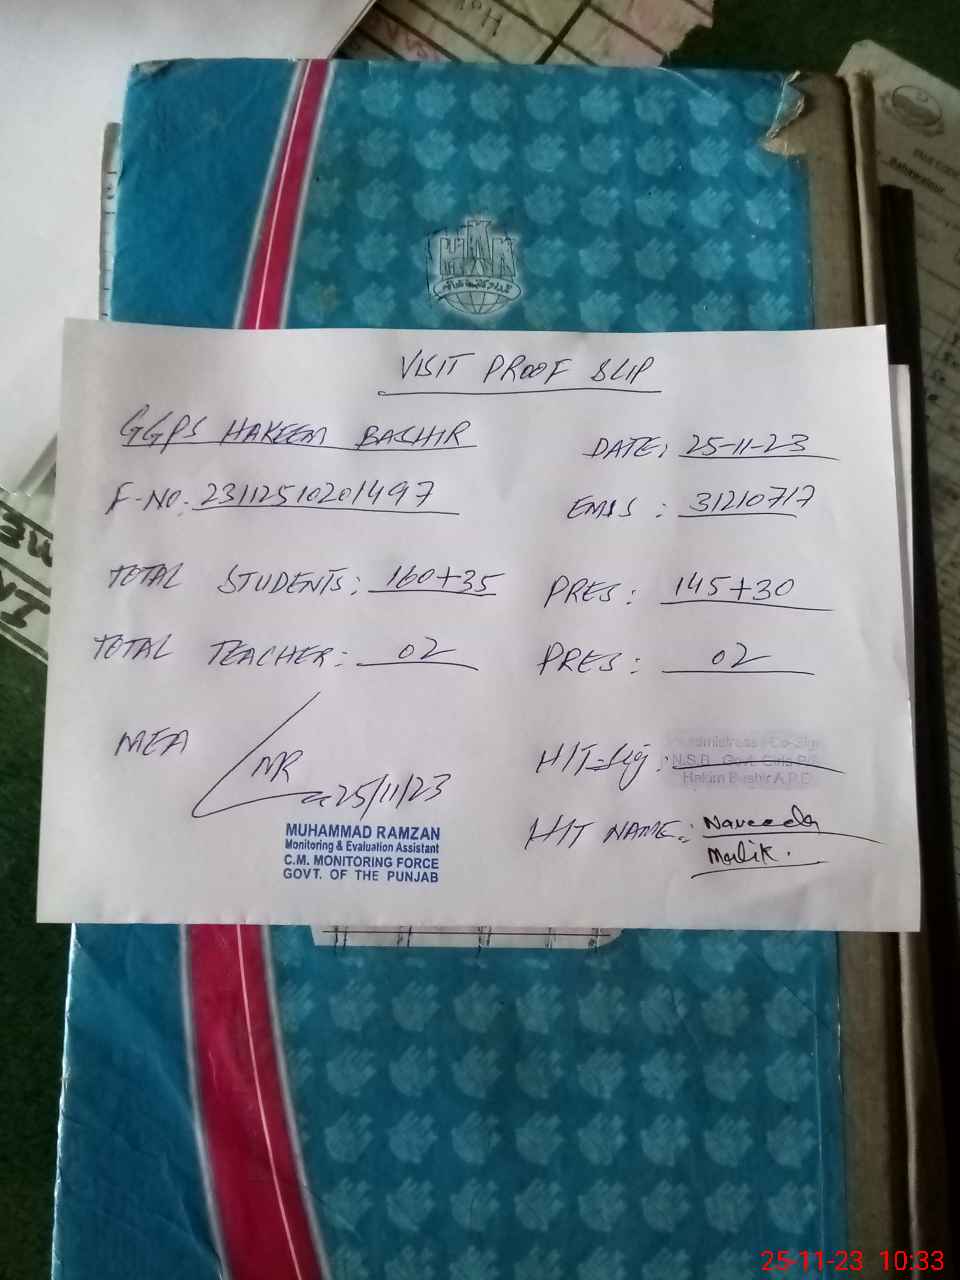 VISIT PROOF SLIP
GGPS HAKEEM BASHIR
DATE: 25-11-23
F-NO: 23112510201497
EMIS : 31210717
TOTAL STUDENTS: 160+35
PRES: 145+30
TOTAL TEACHER: 02
PRES: 02
MEA
MR
25/11/23
MUHAMMAD RAMZAN
Monitoring & Evaluation Assistant
C.M. MONITORING FORCE
GOVT. OF THE PUNJAB
H/T-Sig:
N.S.B. Govt. Girls P/S
Hakim Bashir A.P.E
H/T NAME: Naveeda
Malik.
25-11-23 10:33